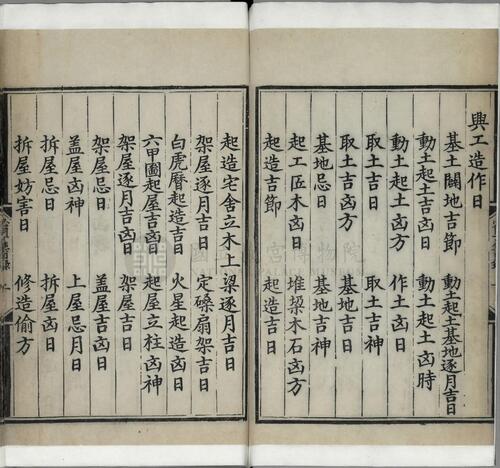 興工造作日
基土闢地吉節　動土起土基地逐月吉日
動土起土吉凶日　動土起土凶時
動土起土凶方　作土凶日
取土吉日　取土吉神
取土吉凶方　基地吉日
基地忌日　基地吉神
起工匠木凶日　堆垜木石凶方
起造吉節　起造吉日
起造宅舍立木上梁逐月吉日
架屋逐月吉日　定磉扇架吉日
白虎曆起造吉日　火星起造凶日
六甲圖起屋吉凶日　起屋立柱凶神
架屋逐月吉凶日　架屋吉日
架屋忌日　蓋屋吉凶日
蓋屋凶神　上屋忌月日
拆屋忌日　拆屋凶日
拆屋妨害日　修造偷方
國立故宮博物院